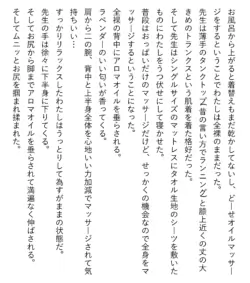 お風呂から上がると着替えもまだ乾かてないし、どーせオイルマッサー
ジをするということでわたしは全裸のままだった。
先生は薄手のタンクトップ(昔の言い方でランニング)と膝上近くの丈の大
きめのトランクスという肌着を着た格好だった。
そして先生はシングルサイズのマットレスにタオル生地のシーツを敷いた
ものにわたしをうつ伏せにして寝かせた。
普段はおっぱいだけのマッサージだけど、せっかくの機会なので全身をマ
ッサージするということになった。
全裸の背中にアロマオイルを垂らされる。
ラベンダーのいい匂いが香ってくる。
肩から二の腕、背中と上半身全体を心地いい力加減でマッサージされて気
持ちいい…
すっかりリラックスしたわたしはうっとりして為すがままの状態だ。
先生の手は徐々に下半身に下りてくる。
そしてお尻から脚までアロマオイルを垂らされて満遍なく伸ばされる。
そしてムニッとお尻を掴まれ揉まれた。